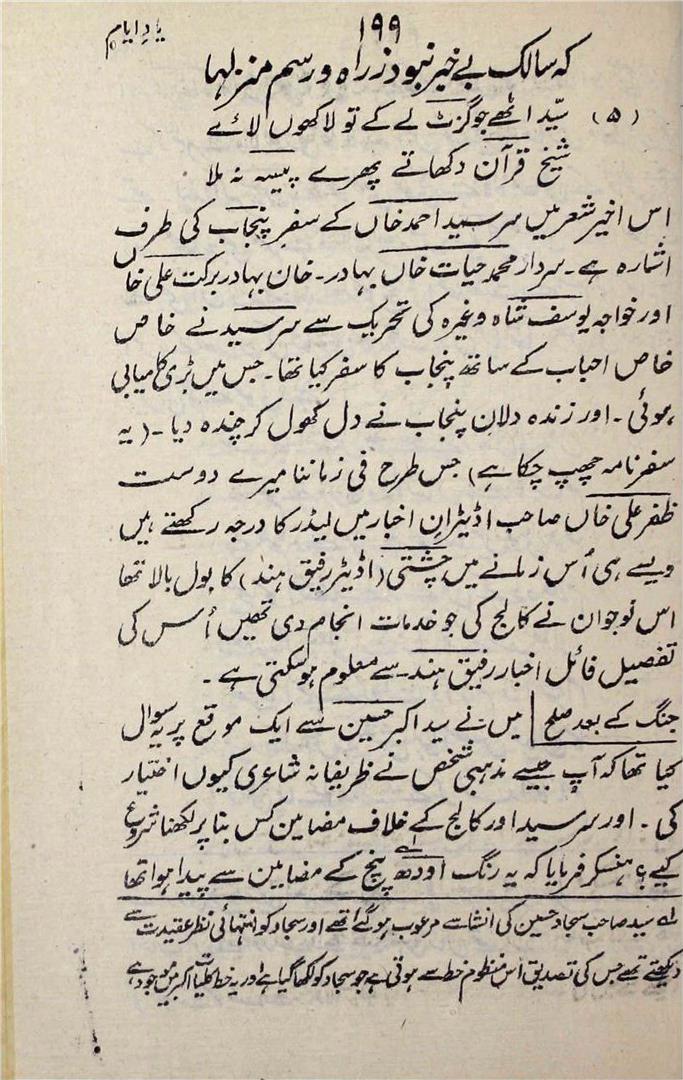 ۱۹۹
یادِ ایام
کہ سالک بے خبر نبود ز راہ و رسم منزلہا
(۵) سیّد اٹھے جو گزٹ لے کے تو لاکھوں لائے
شیخ قرآن دکھاتے پھرے پیسہ نہ ملا
اس اخیر شعر میں سر سید احمد خاں کے سفرِ پنجاب کی طرف
اشارہ ہے۔ سردار محمد حیات خاں بہادر۔ خان بہادر برکت علی خاں
اور خواجہ یوسف شاہ وغیرہ کی تحریک سے سر سید نے خاص
خاص احباب کے ساتھ پنجاب کا سفر کیا تھا۔ جس میں بڑی کامیابی
ہوئی۔ اور زندہ دلانِ پنجاب نے دل کھول کر چندہ دیا۔ (یہ
سفرنامہ چھپ چکا ہے) جس طرح فی زماننا میرے دوست
ظفر علی خاں صاحب اڈیٹرانِ اخبار میں لیڈر کا درجہ رکھتے ہیں
ویسے ہی اُس زمانے میں چشتی (اڈیٹر رفیق ہند) کا بول بالا تھا
اس نوجوان نے کالج کی جو خدمات انجام دی تھیں اُس کی
تفصیل فائل اخبار رفیق ہند سے معلوم ہو سکتی ہے۔
جنگ کے بعد صلح میں نے سید اکبر حسین سے ایک موقع پر یہ سوال
کیا تھا کہ آپ جیسے مذہبی شخص نے ظریفانہ شاعری کیوں اختیار
کی۔ اور سر سید اور کالج کے خلاف مضامین کس بنا پر لکھنا شروع
کیے؟ ہنسکر فرمایا کہ یہ رنگ اودھ پنچ لہ کے مضامین سے پیدا ہوا تھا
لہ سید صاحب سجاد حسین کی انشا سے مرعوب ہو گئے تھے اور سجاد کو انتہائی نظر عقیدت سے
دیکھتے تھے جس کی تصدیق اُس منظوم خط سے ہوتی ہے جو سجاد کو لکھا گیا ہے اور یہ خط کلیات اکبر میں موجود ہے